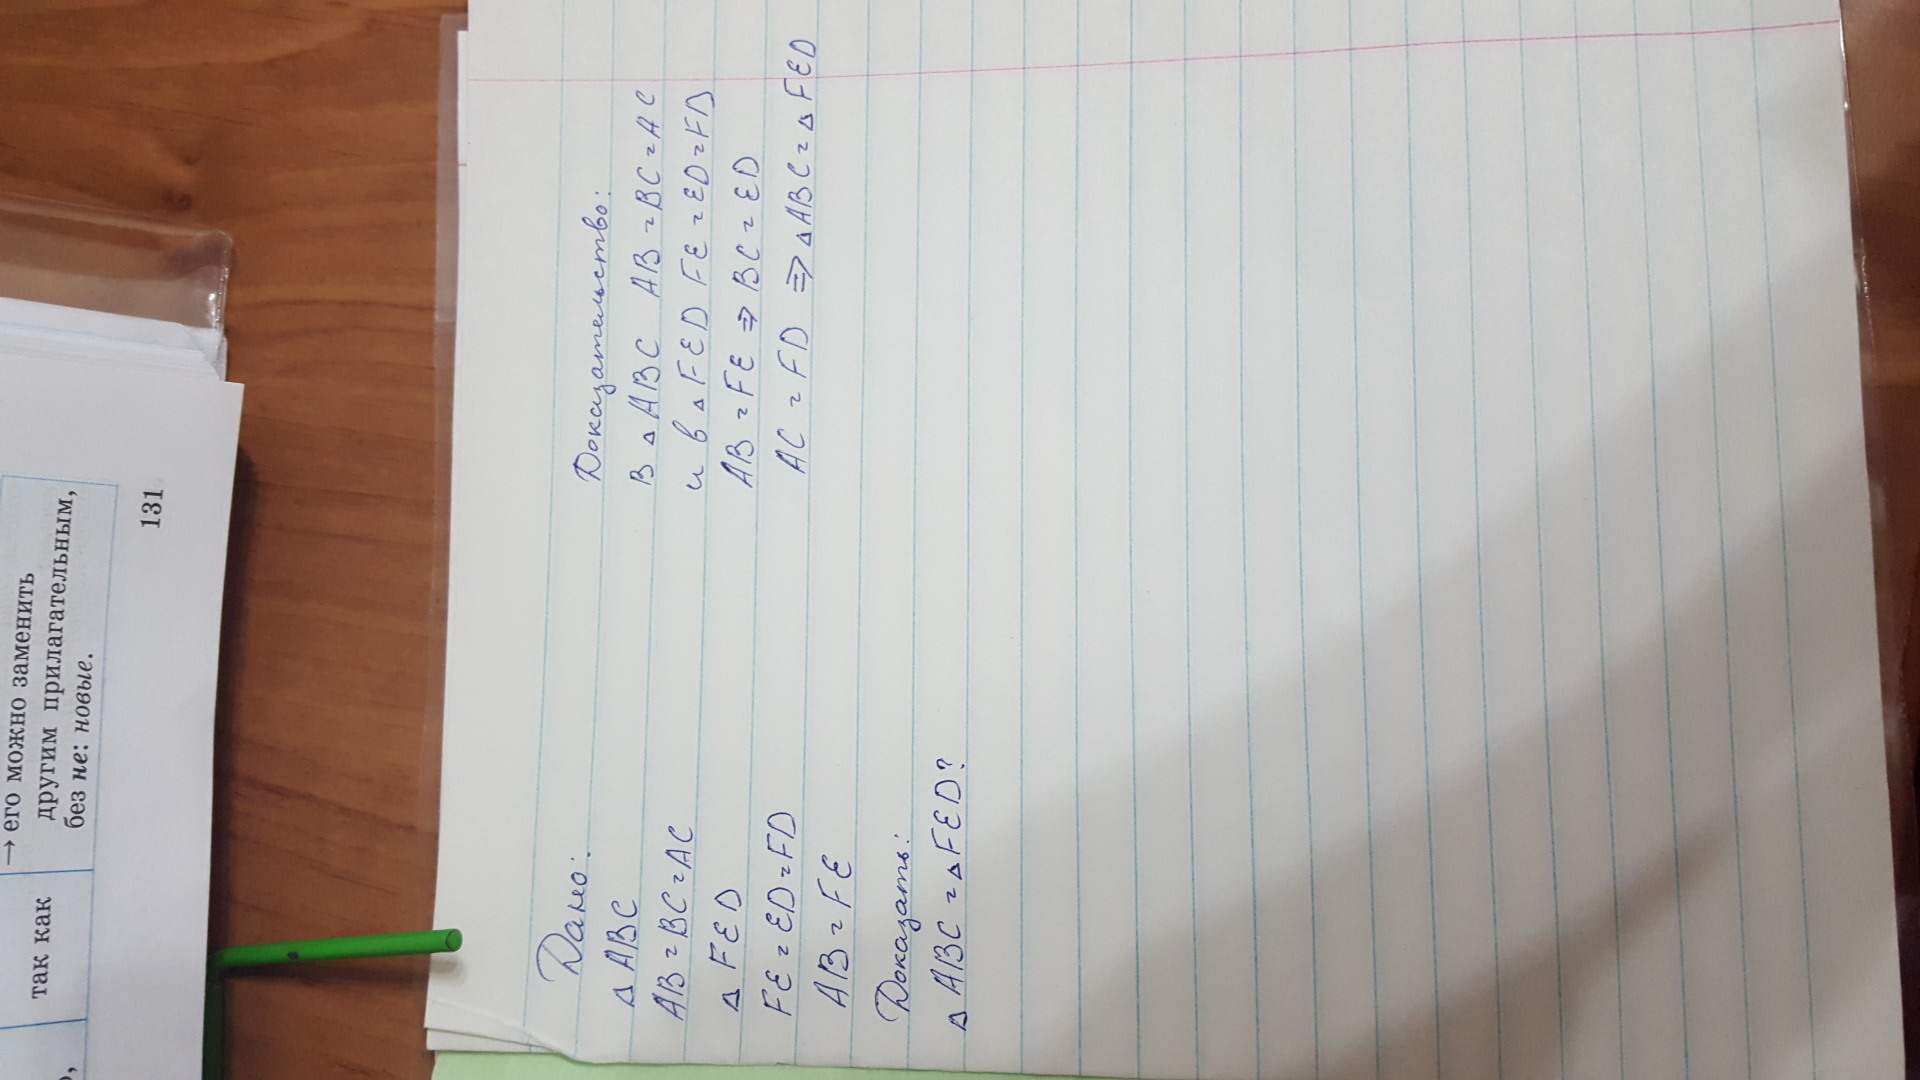 → его можно заменить
другим прилагательным,
без не: новые.
так как
131
Дано:
△ ABC
AB = BC = AC
△ FED
FE = ED = FD
AB = FE
Доказать:
△ ABC = △ FED?
Доказательство:
В △ ABC AB = BC = AC
и в △ FED FE = ED = FD
AB = FE ⇒ BC = ED
AC = FD ⇒ △ ABC = △ FED